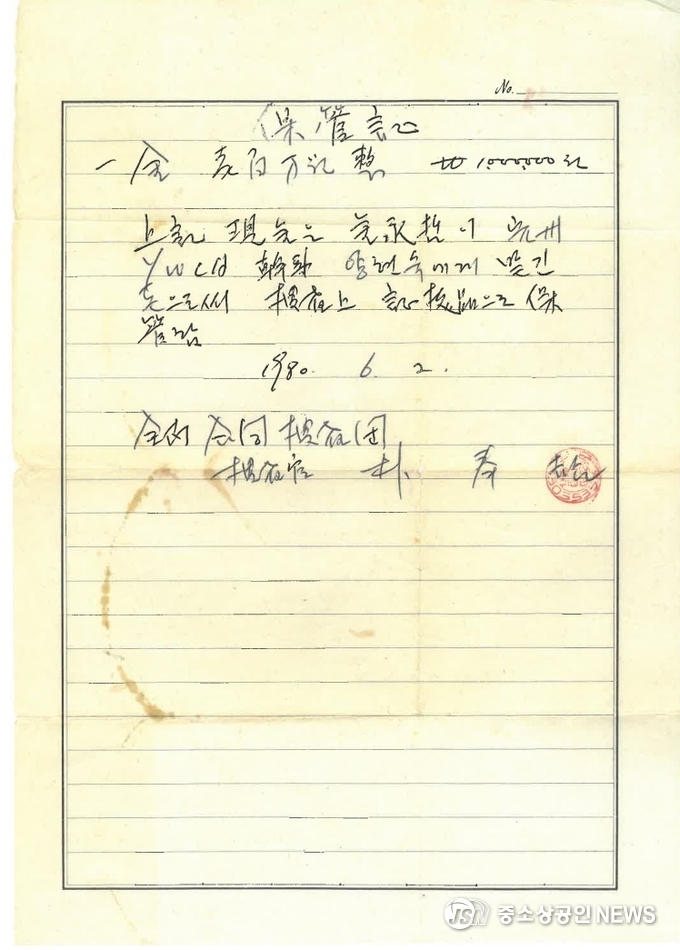 No.
保管証
一金 壱百万원整 ₩1,000,000원
上記 現金은 永哲이 光州
YWCA 幹事 맡긴
돈으로써 搜査上 証拠品으로 保
管함
1980. 6. 2.
全南 合同 搜査団
搜査官 朴 春
JSN 중소상공인NEWS